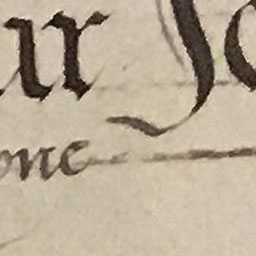 ur Jo
one